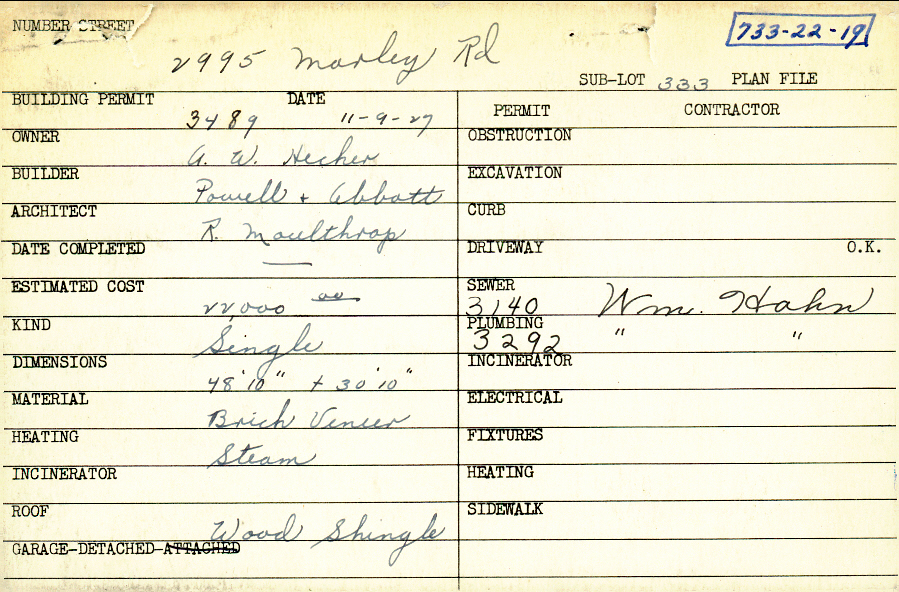 NUMBER STREET
733-22-19
2995 Morley Rd
SUB-LOT 333 PLAN FILE
BUILDING PERMIT DATE
3489 11-9-27
OWNER
A. W. Hecher
BUILDER
Powell + Abbott
ARCHITECT
R. Moulthrop
DATE COMPLETED
—
ESTIMATED COST
22,000 00
KIND
Single
DIMENSIONS
48'10" + 30'10"
MATERIAL
Brick Veneer
HEATING
Steam
INCINERATOR
ROOF
Wood Shingle
GARAGE-DETACHED-ATTACHED
PERMIT CONTRACTOR
OBSTRUCTION
EXCAVATION
CURB
DRIVEWAY O.K.
SEWER
3140 Wm. Hahn
PLUMBING
3292 " "
INCINERATOR
ELECTRICAL
FIXTURES
HEATING
SIDEWALK